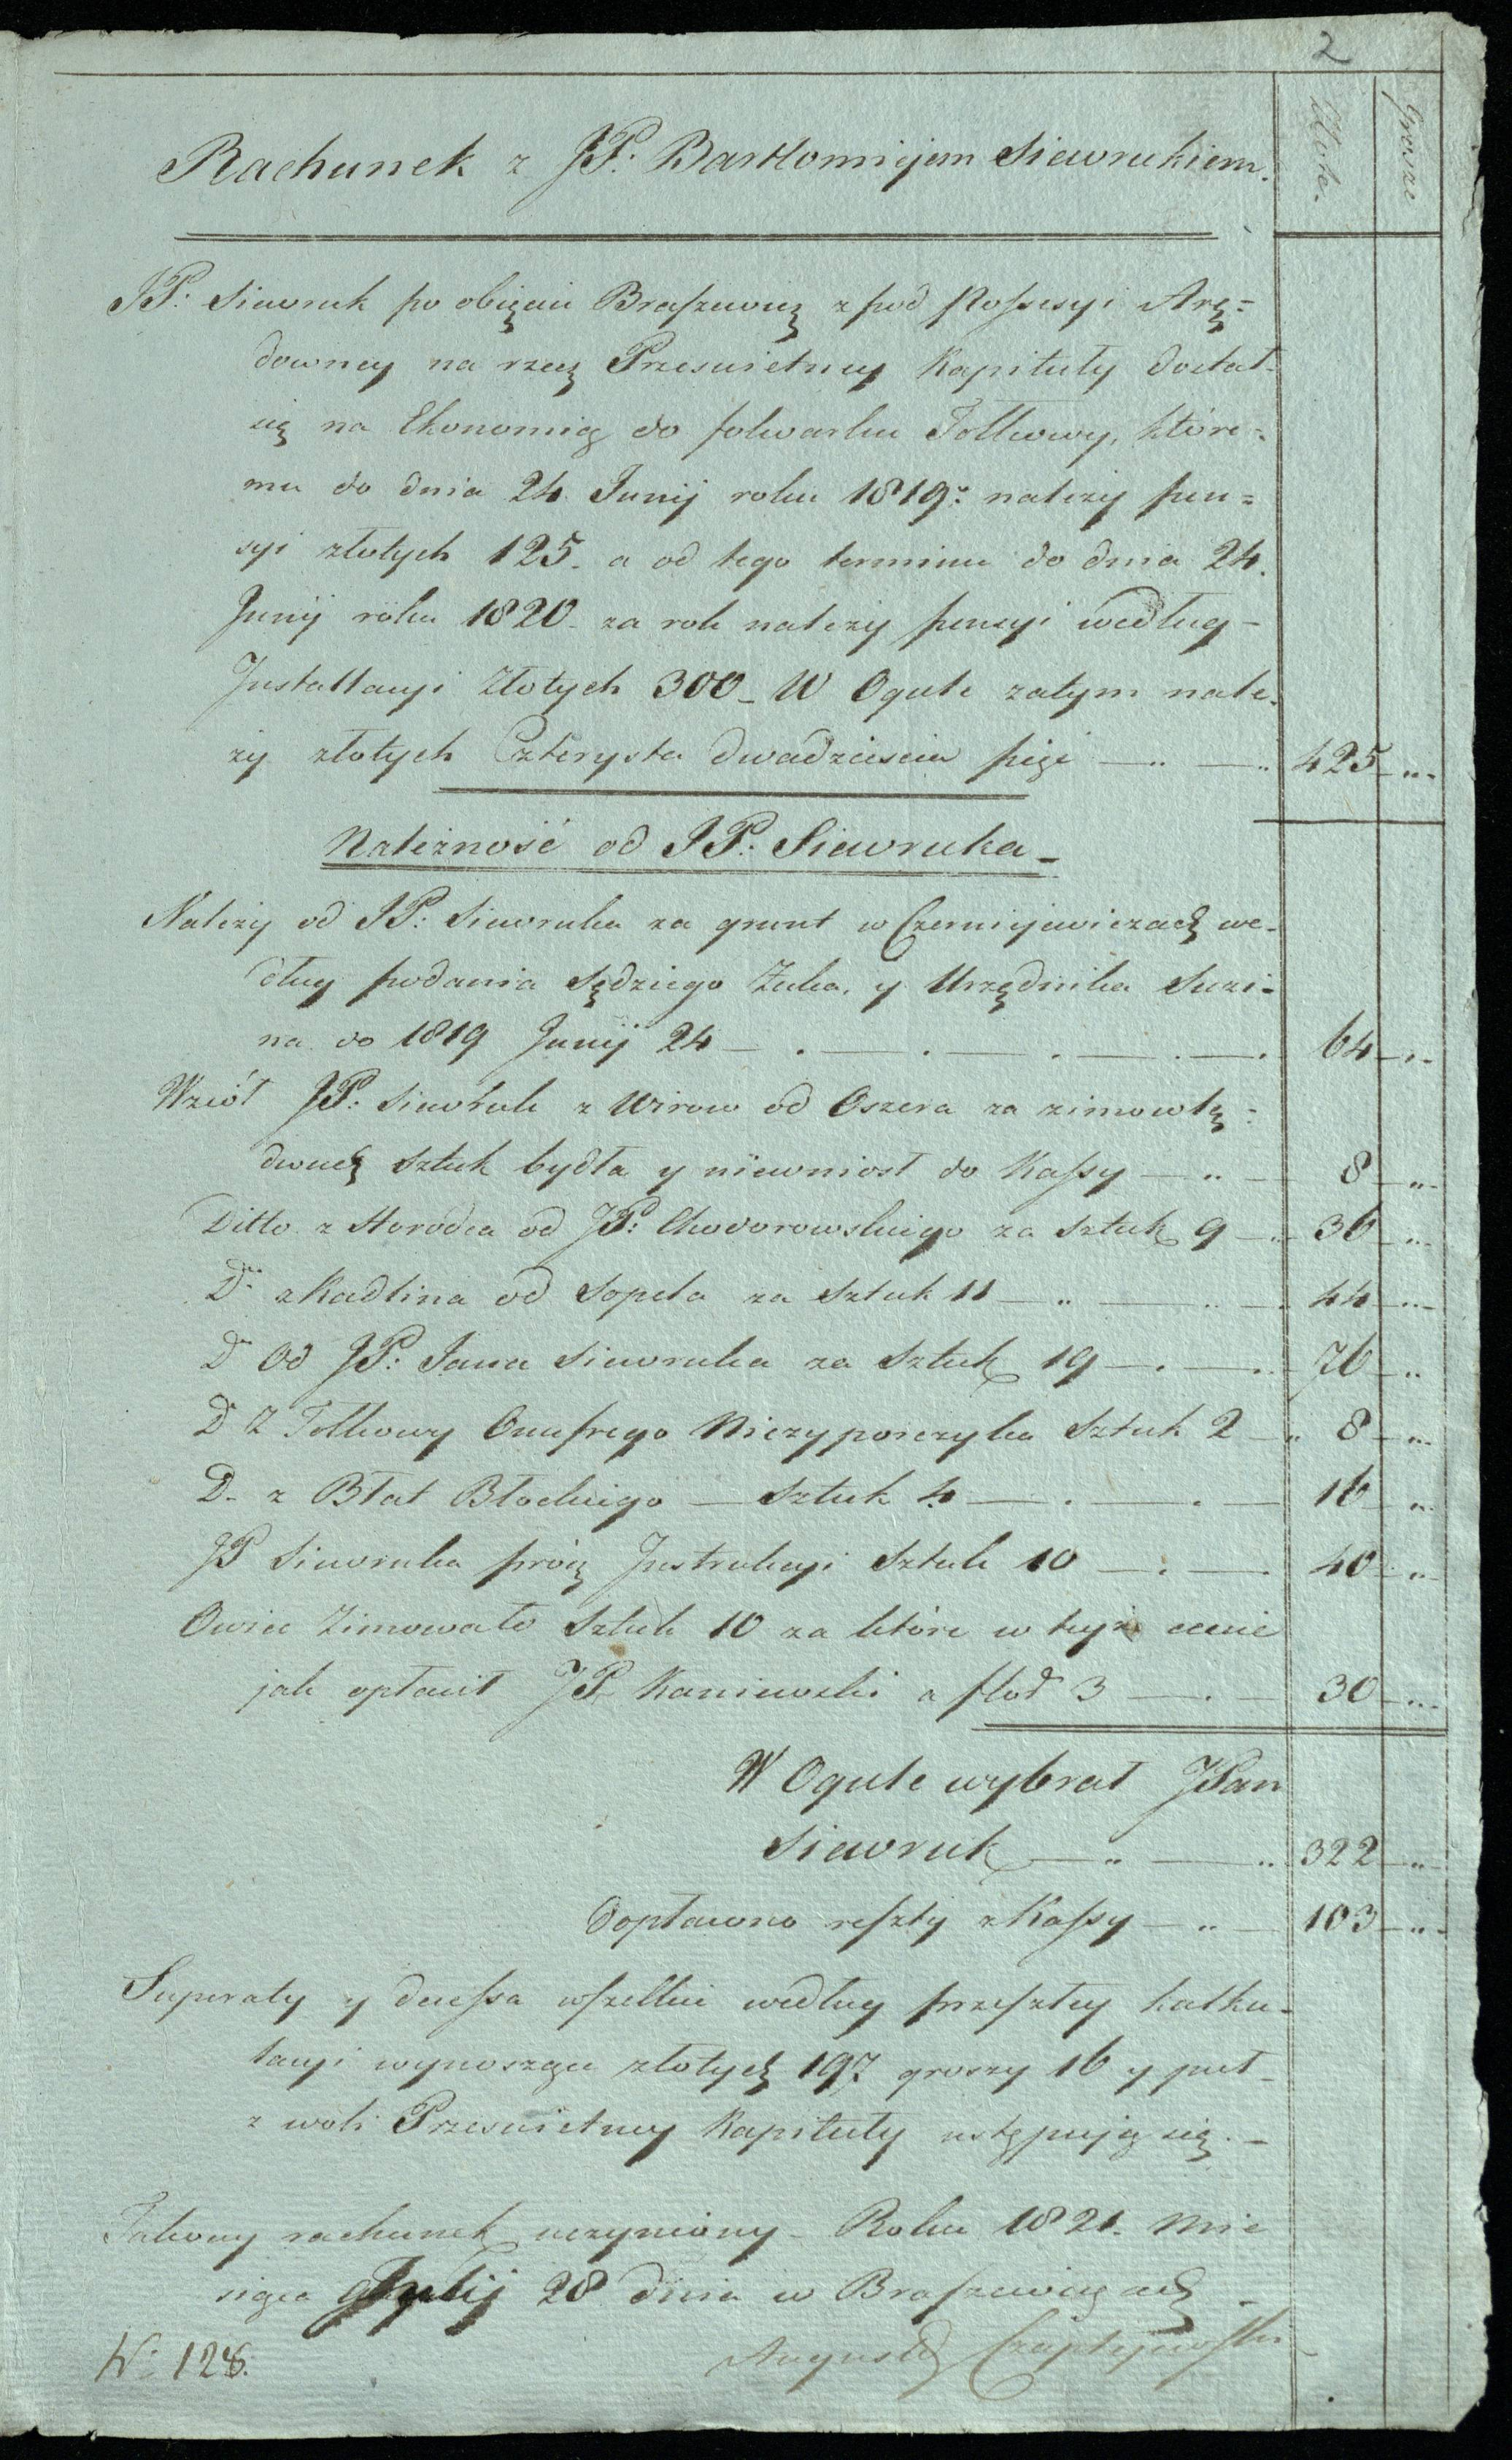 2
Złote. Grosze
Rachunek z JP. Bartłomiejem Siewrukiem.
JP: Siewruk po obięciu Braszewicz z pod Possesyi Arę-
downey na rzecz Przeswietney Kapituły dostał
się na Ekonomię do folwarku Tołkowy, które-
mu do dnia 24 Junij roku 1819: należy pen-
syi złotych 125. a od tego terminu do dnia 24.
Junij roku 1820 za rok należy pensyi według
Installacyi Złotych 300 _ W Ogule zatym nale-
ży złotych Czterysta dwadziescia pięć — 425
Należność od JP. Siewruka _
Należy od JP: Siewruka za grunt w Czerniejewiczach we-
dług podania Sędziego Żuka, y Urzędnika Suzi-
na do 1819 Junij 24 — 64
Wzioł JP: Siewruk z Wirow od Oszera za zimowlę
dwuch sztuk bydła y niewniosł do Kassy — 8
Ditto z Horodca od JP: Chodorowskiego za sztuk 9 — 36
Dº z Kadlina od Sopela za Sztuk 11 — 44
Dº Od JP: Jana Siewruka za Sztuk 19 — 76
Dº Z Tołkowy Onufrego Niczyporczyka Sztuk 2 — 8
D. z Błat Błockiego — Sztuk 4 — 16
JP Siewruka prócz Instrukcyi Sztuk 10 — 40
Owiec Zimowało Sztuk 10 za które w teyże cenie
jak opłacił JP. Kaniewski a złot 3 — 30
W Ogule wybrał JPan
Siewruk — 322
Dopłacono reszty z Kassy — 103
Superaty y decessa wszelkie według przeszłey kalku-
lacyi wynoszące złotych 197 groszy 16 y puł
z woli Przeswietney Kapituły ustępują się. _
Takowy rachunek uczyniony _ Roku 1821. Mie
siąca Julij 28 dnia w Braszewiczach
August
N: 128.